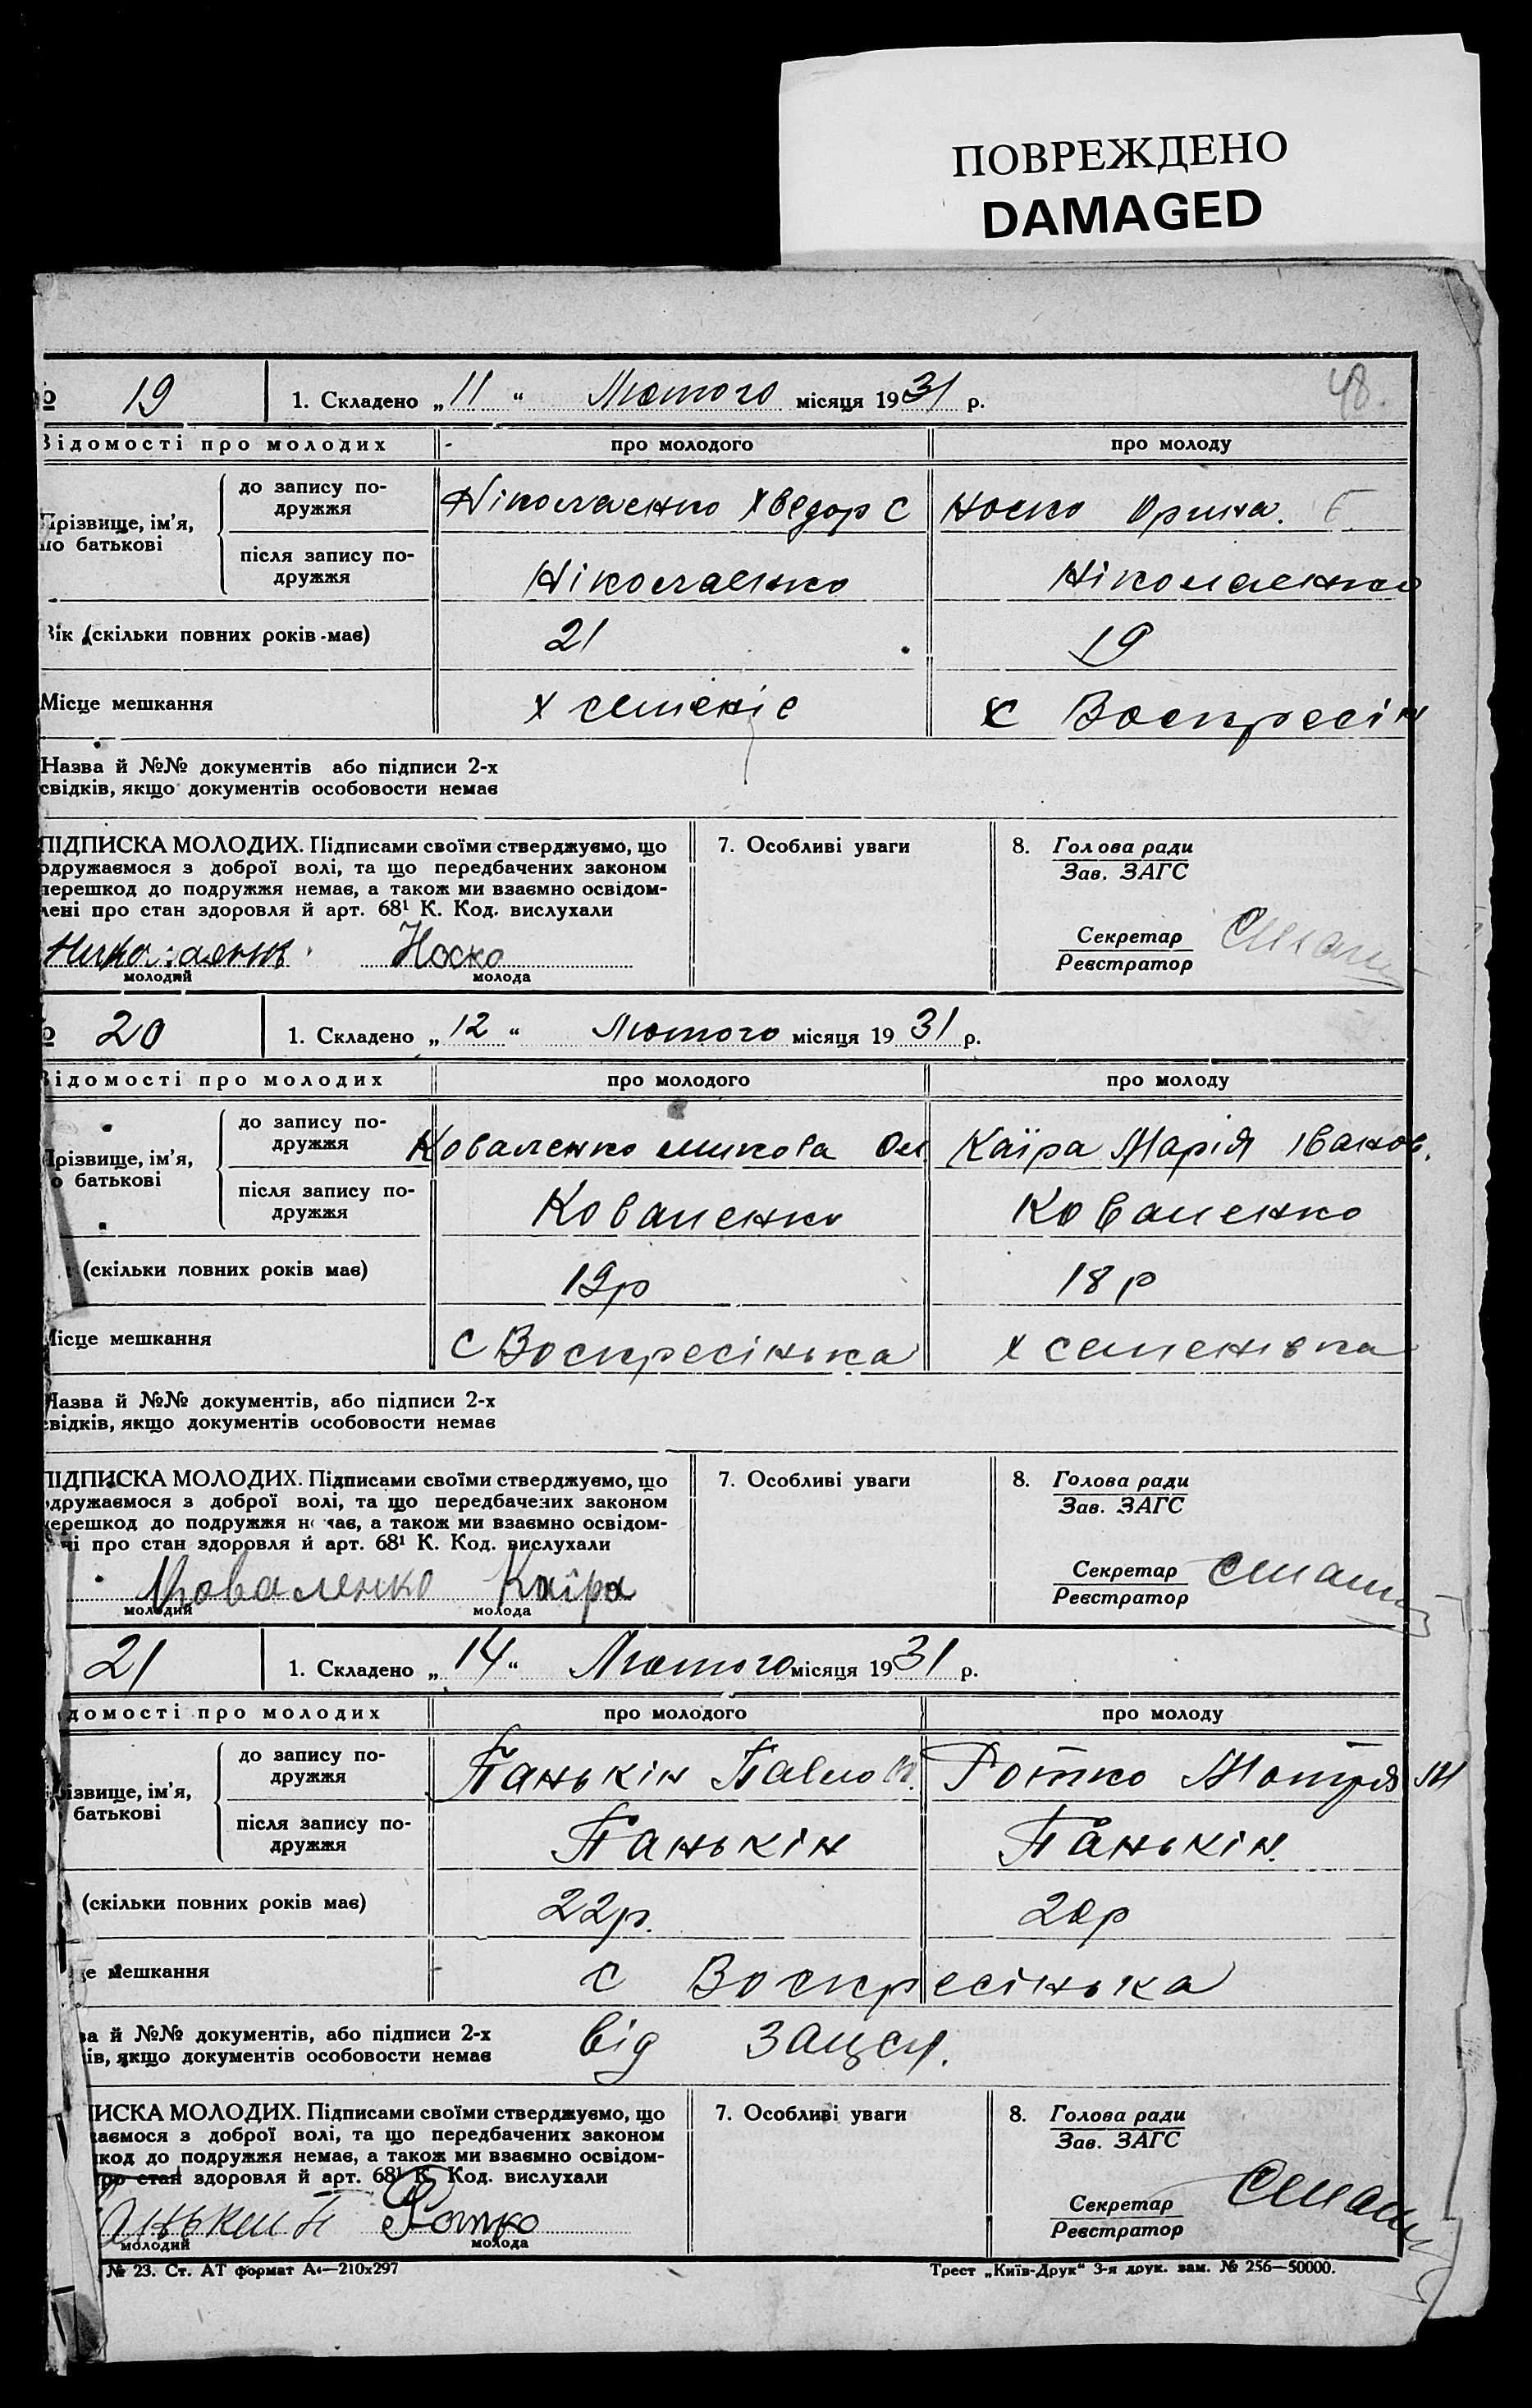 ПОВРЕЖДЕНО
DAMAGED
48.
№ 19 1. Складено „ 11 “ Лютого місяця 1931 р.
Відомості про молодих про молодого про молоду
Прізвище, ім’я, по батькові
до запису по-
дружжя
Ніколаенко Хведор С Носко Орина.
після запису по-
дружжя
Ніколаенко Ніколаенко
Вік (скільки повних років має) 21 19
Місце мешкання х с Воскресін
Назва й №№ документів або підписи 2-х
свідків, якщо документів особовости немає
ПІДПИСКА МОЛОДИХ. Підписами своїми стверджуємо, що
одружаємося з доброї волі, та що передбачених законом
перешкод до подружжя немає, а також ми взаємно освідом-
лені про стан здоровля й арт. 68¹ К. Код. вислухали
Носко
молодий молода
7. Особливі уваги
8. Голова ради
Зав. ЗАГС
Секретар
Реєстратор
№ 20 1. Складено „ 12 “ Лютого місяця 1931 р.
Відомості про молодих про молодого про молоду
Прізвище, ім’я,
по батькові
до запису по-
дружжя
Коваленко микола Ол Каїра Марія Іванов.
після запису по-
дружжя
Коваленко Коваленко
(скільки повних років має) 19р 18р
Місце мешкання с Воскресінька х семенівка
Назва й №№ документів, або підписи 2-х
свідків, якщо документів особовости немає
ПІДПИСКА МОЛОДИХ. Підписами своїми стверджуємо, що
одружаємося з доброї волі, та що передбачених законом
перешкод до подружжя немає, а також ми взаємно освідом-
лені про стан здоровля й арт. 68¹ К. Код. вислухали
Коваленко Каїра
молодий молода
7. Особливі уваги
8. Голова ради
Зав. ЗАГС
Секретар
Реєстратор
21 1. Складено „ 14 “ Лютого місяця 1931 р.
домості про молодих про молодого про молоду
різвище, ім’я,
батькові
до запису по-
дружжя
Панькін Павло Ротко Мотря М
після запису по-
дружжя
Панькін Панькін.
(скільки повних років має) 22р. 20р
це мешкання с Воскресінька
ва й №№ документів, або підписи 2-х
ків, якщо документів особовости немає
від
ПИСКА МОЛОДИХ. Підписами своїми стверджуємо, що
жаємося з доброї волі, та що передбачених законом
шкод до подружжя немає, а також ми взаємно освідом-
про стан здоровля й арт. 68¹ К. Код. вислухали
анькин П Ротко
молодий молода
7. Особливі уваги
8. Голова ради
Зав. ЗАГС
Секретар
Реєстратор
№ 23. Ст. АТ формат А4—210х297 Трест „Київ-Друк“ 3-я друк. зам. № 256—50000.